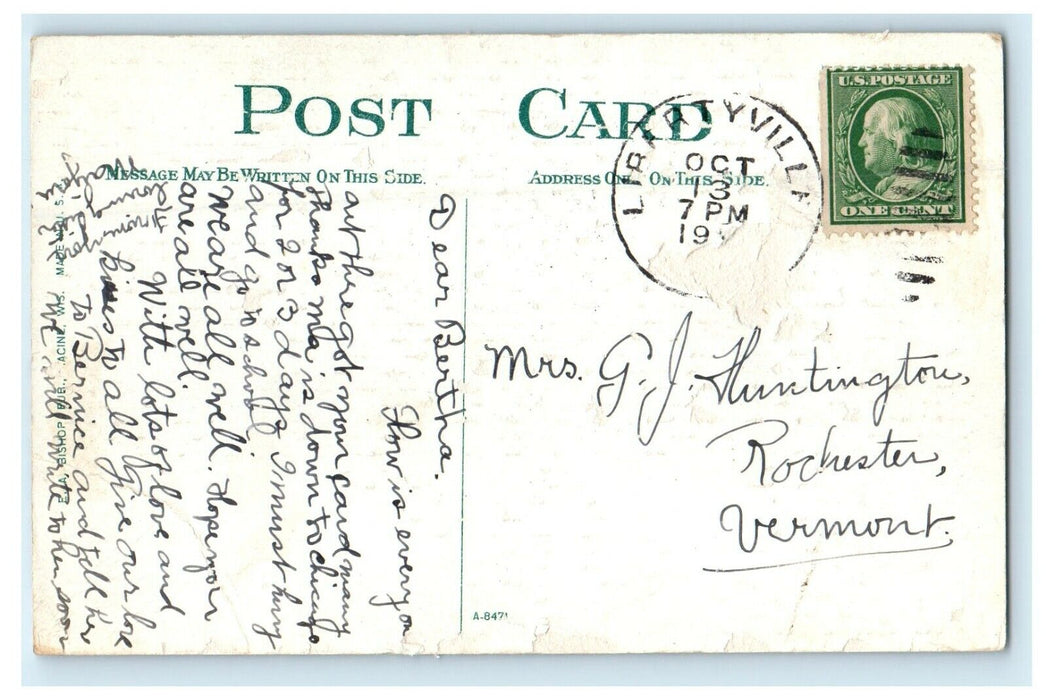 POST CARD
MESSAGE MAY BE WRITTEN ON THIS SIDE.
ADDRESS ONL ON THIS SIDE.
U.S. POSTAGE
ONE CENT
LIBERTYVILL
OCT
13
7 PM
19
Mrs. G. J. Huntington,
Rochester,
Vermont.
A-8471
E.A. BISHOP PUB., RACINE, WIS. MADE IN U.S.A.
Dear Bertha.
How is every on
out there got your card many
thanks ma is down to chicago
for 2 or 3 days I must hury
and go to school
we are all well. Hope you
are all well.
With lots of love and
kisses to all give our love
to Bernice and tell her
we will write to her soon